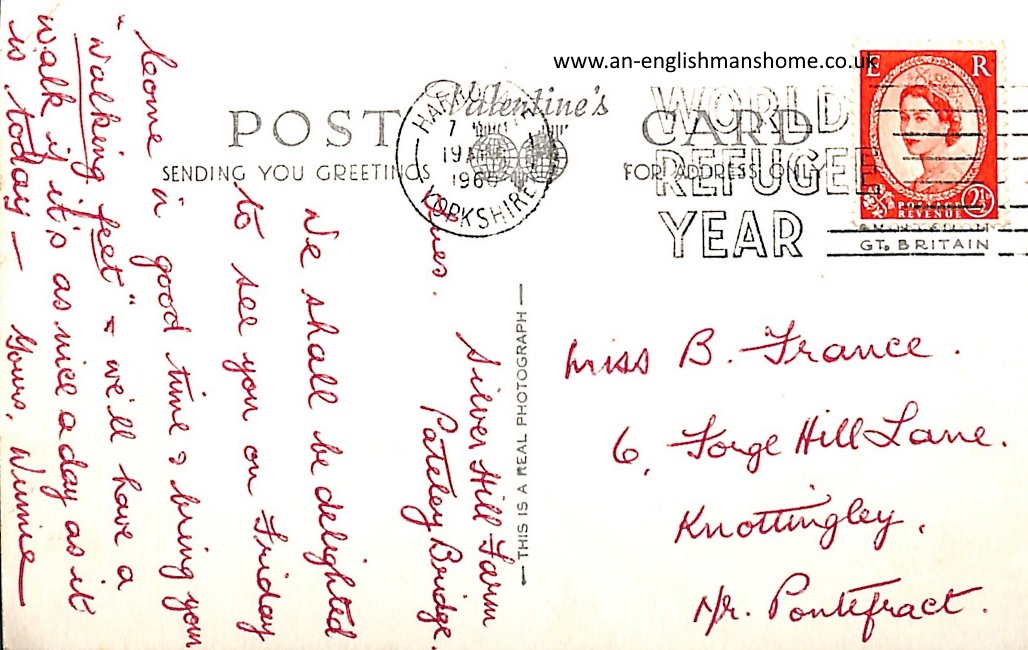 www.an-englishmanshome.co.uk
POST CARD
Valentine's
SENDING YOU GREETINGS
FOR ADDRESS ONLY
YORKSHIRE
WORLD
REFUGEE
YEAR
GT. BRITAIN
E R
POSTAGE
REVENUE
2½
— THIS IS A REAL PHOTOGRAPH —
Silver Hill Farm
Pateley Bridge
Tues.
We shall be delighted
to see you on Friday
Come in good time & bring your
"walking feet" & we'll have a
walk if it's as nice a day as it
is today — Yours, Winnie
Miss B. France.
6, Forge Hill Lane.
Knottingley.
Nr. Pontefract.